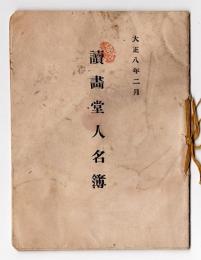 大正八年二月
讀畵堂人名簿